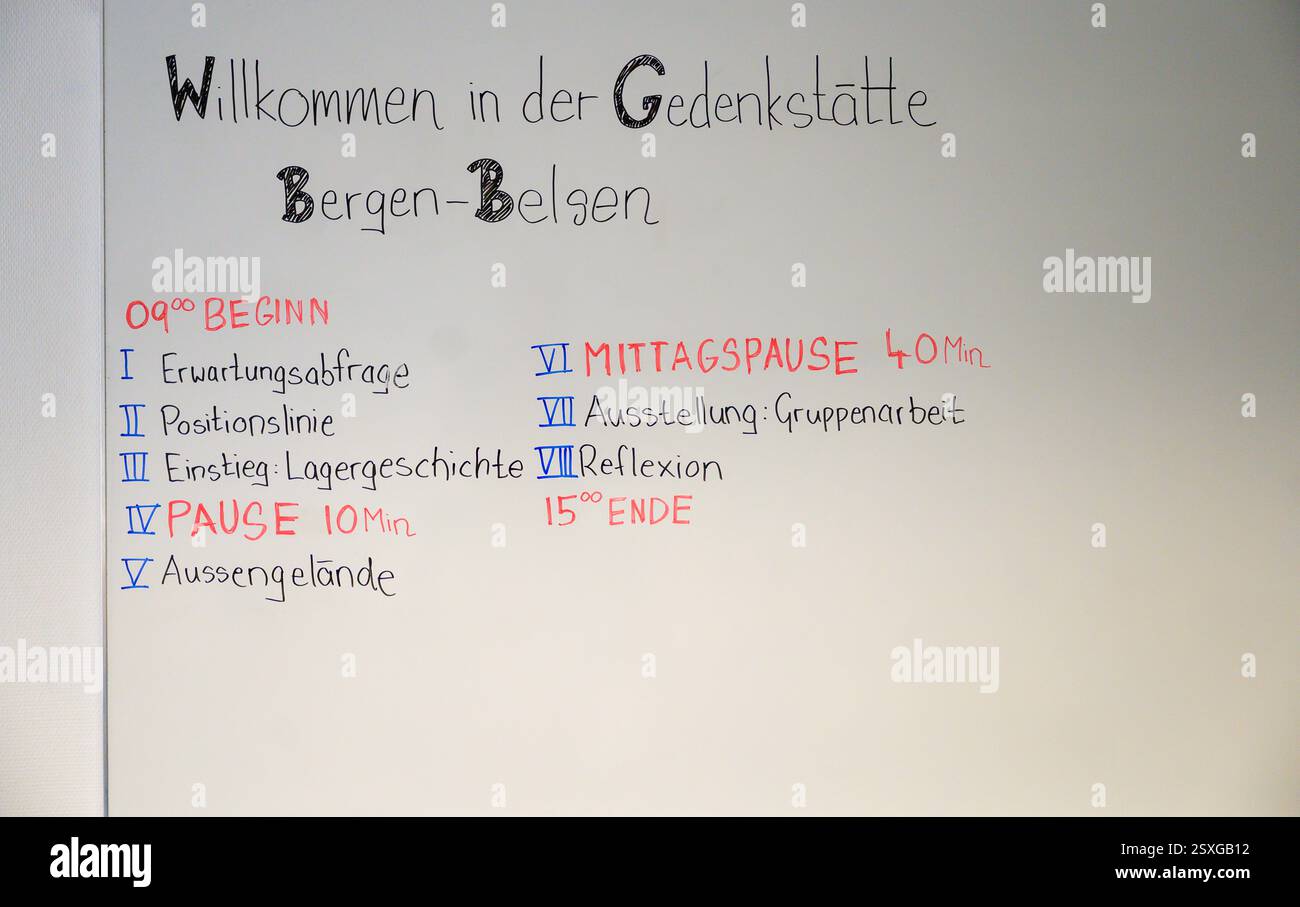 Willkommen in der Gedenkstätte
Bergen-Belsen
09⁰⁰ BEGINN
I Erwartungsabfrage
II Positionslinie
III Einstieg: Lagergeschichte
IV PAUSE 10 Min
V Aussengelände
VI MITTAGSPAUSE 40 Min
VII Ausstellung: Gruppenarbeit
VIII Reflexion
15⁰⁰ ENDE
alamy
alamy
alamy
alamy
a
alamy
Image ID: 2SXGB12
www.alamy.com